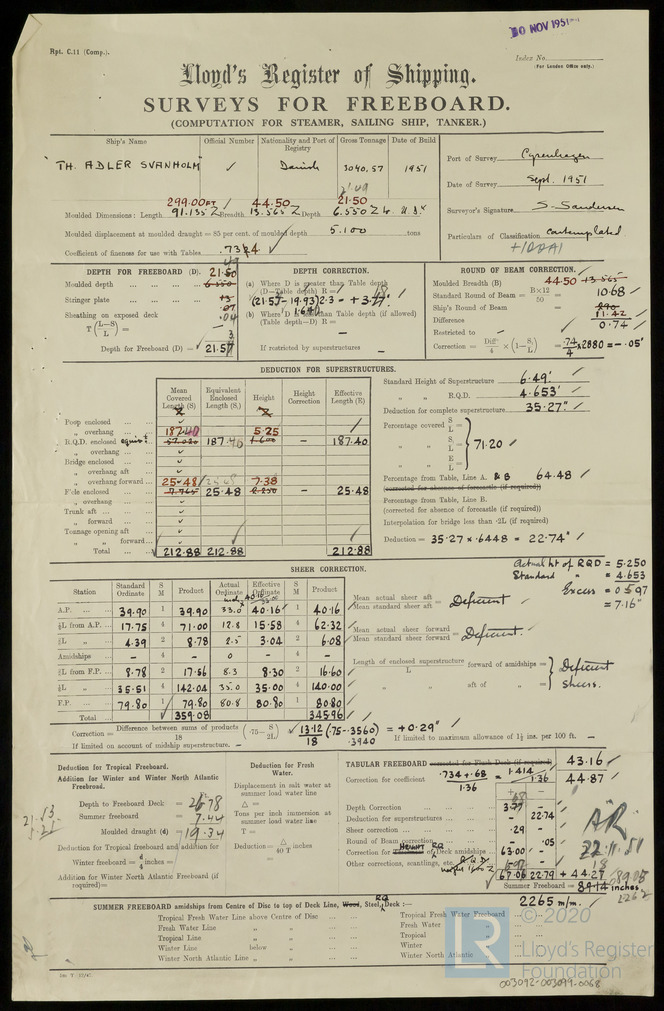 10 NOV 1951
Rpt. C.11 (Comp.).
Index No.
(For London Office only.)
Lloyd's Register of Shipping.
SURVEYS FOR FREEBOARD.
(COMPUTATION FOR STEAMER, SAILING SHIP, TANKER.)
Ship's Name Official Number Nationality and Port of Registry Gross Tonnage Date of Build
"TH. ADLER SVANHOLM" Danish 3040,57 1951
Port of Survey
Date of Survey Sept. 1951
Surveyor's Signature
Particulars of Classification contemplated
+100A1
299.00 FT 44.50 21.50
Moulded Dimensions: Length 91.135 Breadth 13.565 Depth 6.550
Moulded displacement at moulded draught = 85 per cent. of moulded depth 5.100 tons
Coefficient of fineness for use with Tables .734
DEPTH FOR FREEBOARD (D).
Moulded depth 21.50
6.550
Stringer plate
Sheathing on exposed deck
T (L-S / L) =
Depth for Freeboard (D) = 21.57
DEPTH CORRECTION.
(a) Where D is greater than Table depth
(D—Table depth) R =
(21.57-19.93) 2.3 = +3.77
(b) Where D is less than Table depth (if allowed)
(Table depth—D) R =
If restricted by superstructures
ROUND OF BEAM CORRECTION.
Moulded Breadth (B) 44.50 13.565
Standard Round of Beam = B×12/50 = 10.68
Ship's Round of Beam = 11.42
Difference 0.74
Restricted to
Correction = Diff/4 × (1-S/L) = .74/4 x .2880 = -.05'
DEDUCTION FOR SUPERSTRUCTURES.
Mean Covered Length (S) Equivalent Enclosed Length (S₁) Height Height Correction Effective Length (E)
Poop enclosed
" overhang 187.40 5.25
R.Q.D. enclosed 187.40 1.600 - 187.40
" overhang
Bridge enclosed
" overhang aft
" overhang forward 25.48 25.48 7.38
F'cle enclosed 7.765 25.48 2.250 - 25.48
" overhang
Trunk aft
" forward
Tonnage opening aft
" " forward
Total 212.88 212.88 212.88
Standard Height of Superstructure 6.49'
" " R.Q.D. 4.653'
Deduction for complete superstructure 35.27"
Percentage covered S/L =
" " S₁/L = 71.20
" " E/L =
Percentage from Table, Line A. & B 64.48
(corrected for absence of forecastle (if required))
Percentage from Table, Line B.
(corrected for absence of forecastle (if required))
Interpolation for bridge less than ·2L (if required)
Deduction = 35.27 x .6448 = 22.74"
SHEER CORRECTION.
Station Standard Ordinate S M Product Actual Ordinate Effective Ordinate S M Product
A.P. 39.90 1 39.90 33.0 40.16 1 40.16
⅙L from A.P. 17.75 4 71.00 12.8 15.58 4 62.32
⅓L " 4.39 2 8.78 2.5 3.04 2 6.08
Amidships - 4 - 0 - 4 -
⅓L from F.P. 8.78 2 17.56 8.3 8.30 2 16.60
⅙L " 35.51 4 142.04 35.0 35.00 4 140.00
F.P. 79.80 1 79.80 80.8 80.80 1 80.80
Total 359.08 345.96
Actual ht of RQD = 5.250
Standard " = 4.653
Excess = 0.597
= 7.16"
Mean actual sheer aft / Mean standard sheer aft = Deficient
Mean actual sheer forward / Mean standard sheer forward = Deficient.
Length of enclosed superstructure / L forward of amidships = Deficient
" " aft of " = sheers.
Correction = Difference between sums of products / 18 (·75 - S/2L) = 13.12/18 (.75-.3560) .3940 = +0.29"
If limited on account of midship superstructure.
If limited to maximum allowance of 1½ ins. per 100 ft.
Deduction for Tropical Freeboard.
Addition for Winter and Winter North Atlantic Freeboard.
Depth to Freeboard Deck = 26.78
Summer freeboard = 7.44
Moulded draught (d) = 19.34
Deduction for Tropical freeboard and addition for
Winter freeboard = d/4 inches =
Addition for Winter North Atlantic Freeboard (if required)=
Deduction for Fresh Water.
Displacement in salt water at summer load water line
Δ =
Tons per inch immersion at summer load water line
T =
Deduction = Δ / 40 T inches
TABULAR FREEBOARD corrected for Flush Deck (if required) 43.16
Correction for coefficient .734+.68 / 1.36 = 1.414 / 1.36 44.87
+ -
Depth Correction 3.77
Deduction for superstructures - 22.74
Sheer correction .29 -
Round of Beam correction - .05
Correction for HEIGHT of RQ Deck amidships 63.00 -
Other corrections, scantlings, etc.
67.06 22.79 + 44.27
Summer Freeboard = 89.14 inches
2265 m/m.
22.11.51
SUMMER FREEBOARD amidships from Centre of Disc to top of Deck Line, Wood, Steel, RQ Deck:—
Tropical Fresh Water Line above Centre of Disc
Fresh Water Line " "
Tropical Line " "
Winter Line below "
Winter North Atlantic Line " "
Tropical Fresh Water Freeboard
Fresh Water "
Tropical "
Winter "
Winter North Atlantic "
© 2020
LR
Lloyd's Register
Foundation
003092-003099-0068